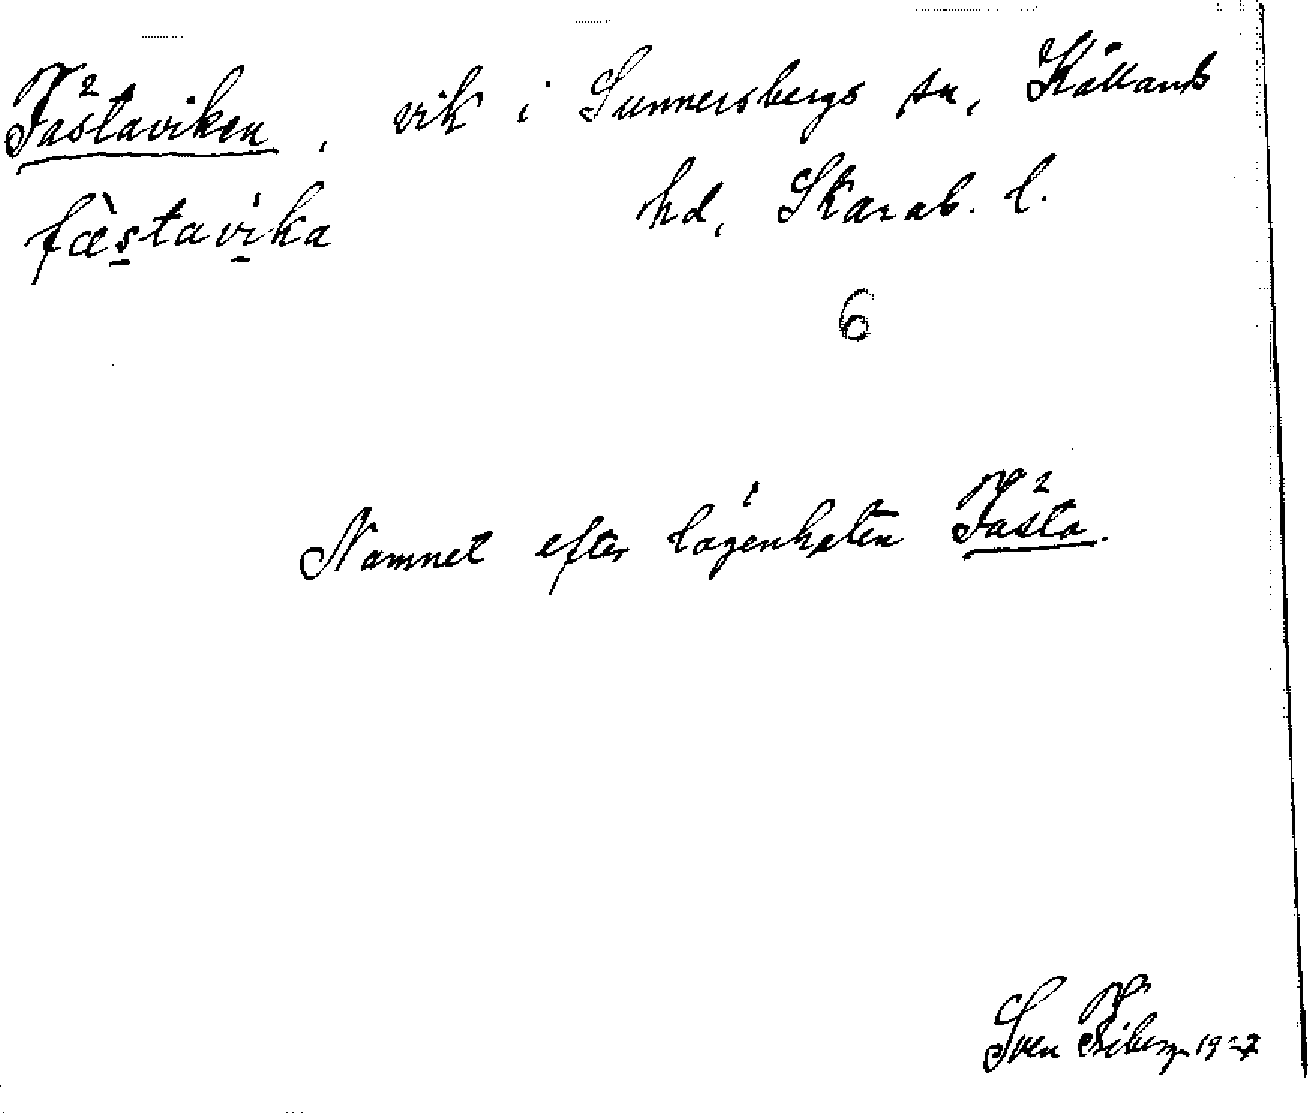 Fästaviken, vik i Sunnersbergs sn, Kållands
fæ̀stavika hd, Skarab. l.
6
Namnet efter lägenheten Fästa.
Sven Friberg 1927